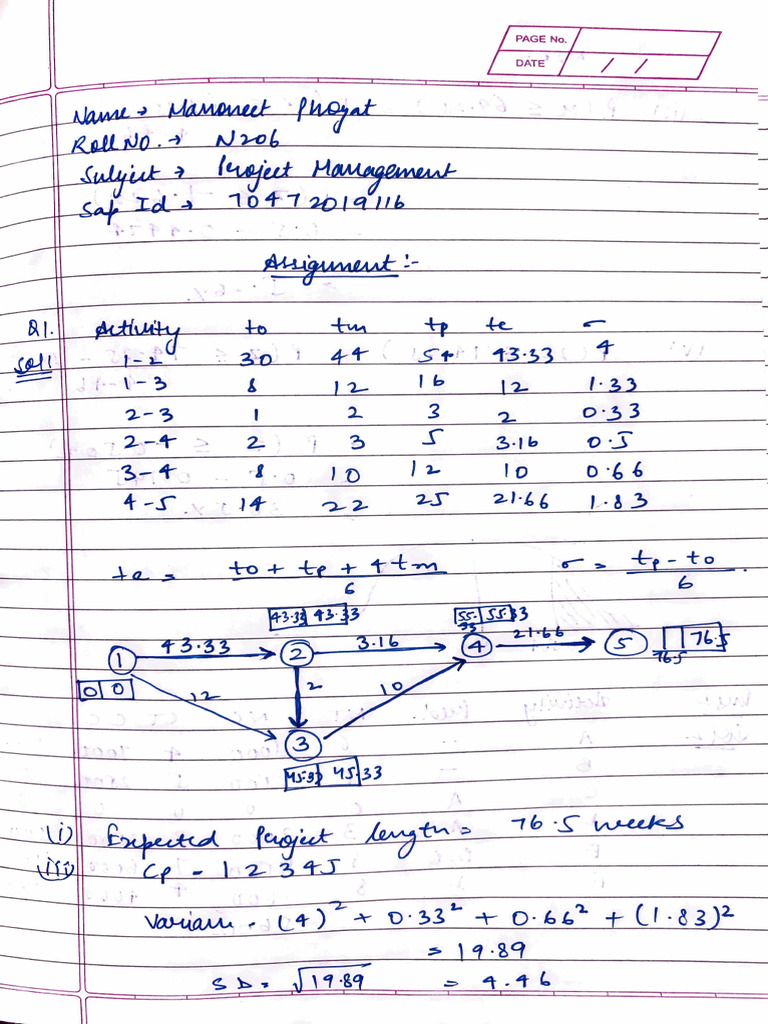 PAGE No.
DATE / /
Name → Manoneet Phogat
Roll NO. → N206
Subject → Project Management
Sap Id → 70472019116
Assignment :-
Q1. Activity to tm tp te σ
Sol! 1-2 30 44 54 43.33 4
1-3 8 12 16 12 1.33
2-3 1 2 3 2 0.33
2-4 2 3 5 3.16 0.5
3-4 8 10 12 10 0.66
4-5 14 22 25 21.66 1.83
te = to + tp + 4tm / 6 σ = tp - to / 6.
43.33 43.33 55.33 55.33
1 43.33 2 3.16 4 21.66 5 76.5 76.5
0 0 12 2 10
3
45.33 45.33
(i) Expected Project length = 76.5 weeks
(iii) Cp - 1 2 3 4 5
Varian - (4)² + 0.33² + 0.66² + (1.83)²
= 19.89
SD = √19.89 = 4.46